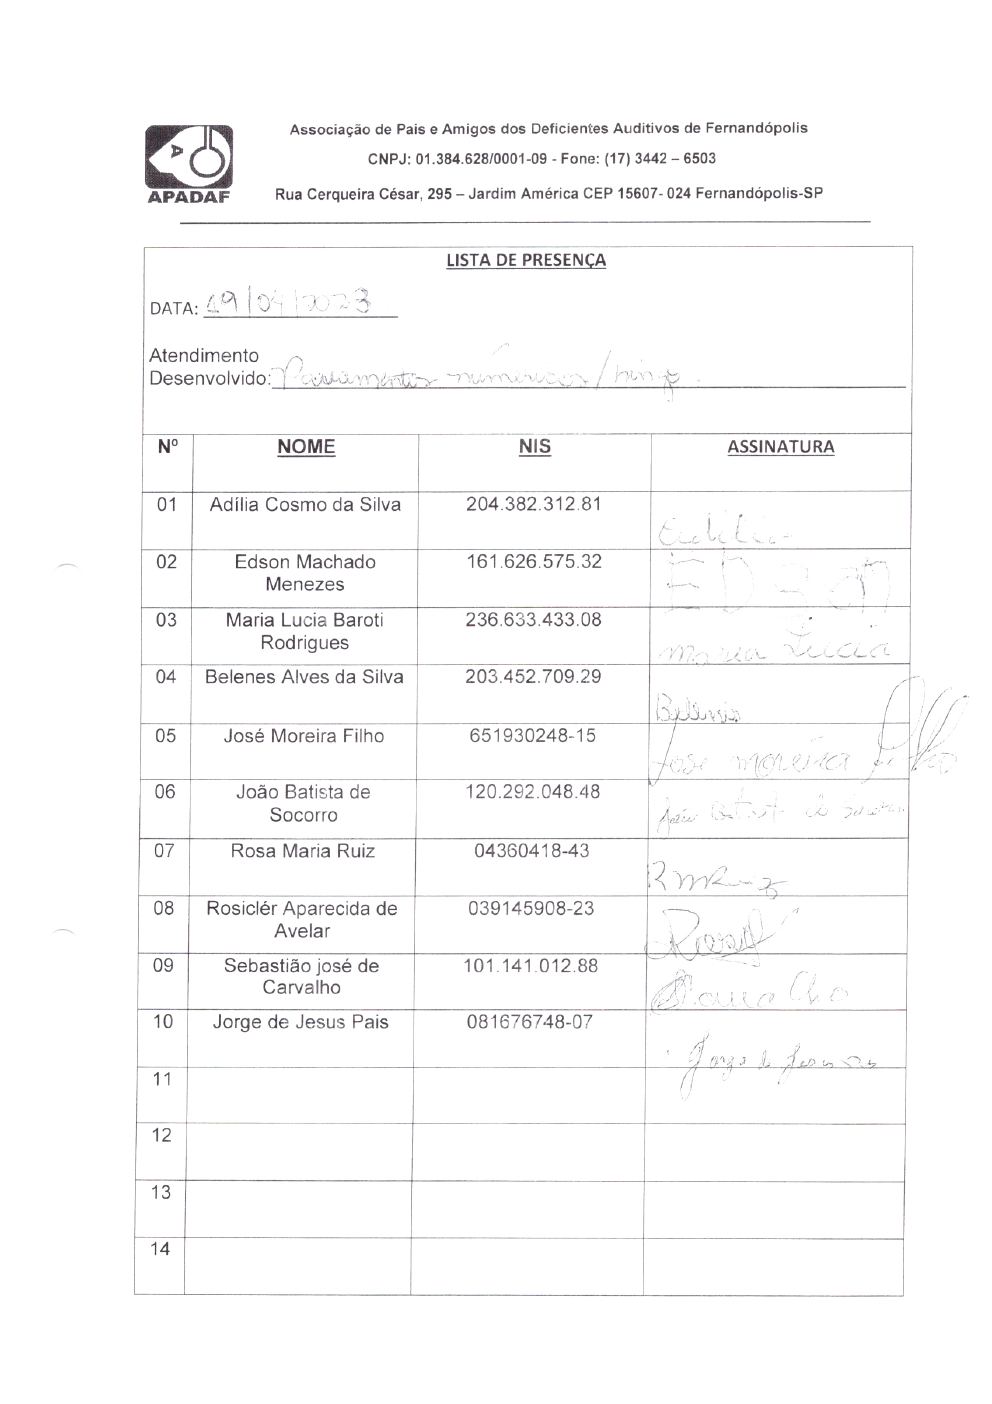 Associação de Pais e Amigos dos Deficientes Auditivos de Fernandópolis
CNPJ: 01.384.628/0001-09 - Fone: (17) 3442 – 6503
APADAF
Rua Cerqueira César, 295 – Jardim América CEP 15607- 024 Fernandópolis-SP
LISTA DE PRESENÇA
DATA: 19/04/2023
Atendimento
Desenvolvido: numéricos /
Nº NOME NIS ASSINATURA
01 Adília Cosmo da Silva 204.382.312.81
02 Edson Machado 161.626.575.32
Menezes
03 Maria Lucia Baroti 236.633.433.08
Rodrigues Maria Lucia
04 Belenes Alves da Silva 203.452.709.29
05 José Moreira Filho 651930248-15
Jose moreira filho
06 João Batista de 120.292.048.48
Socorro João Batista do
07 Rosa Maria Ruiz 04360418-43
RMRuiz
08 Rosiclér Aparecida de 039145908-23
Avelar
09 Sebastião josé de 101.141.012.88
Carvalho
10 Jorge de Jesus Pais 081676748-07
Jorge de Jesus
11
12
13
14